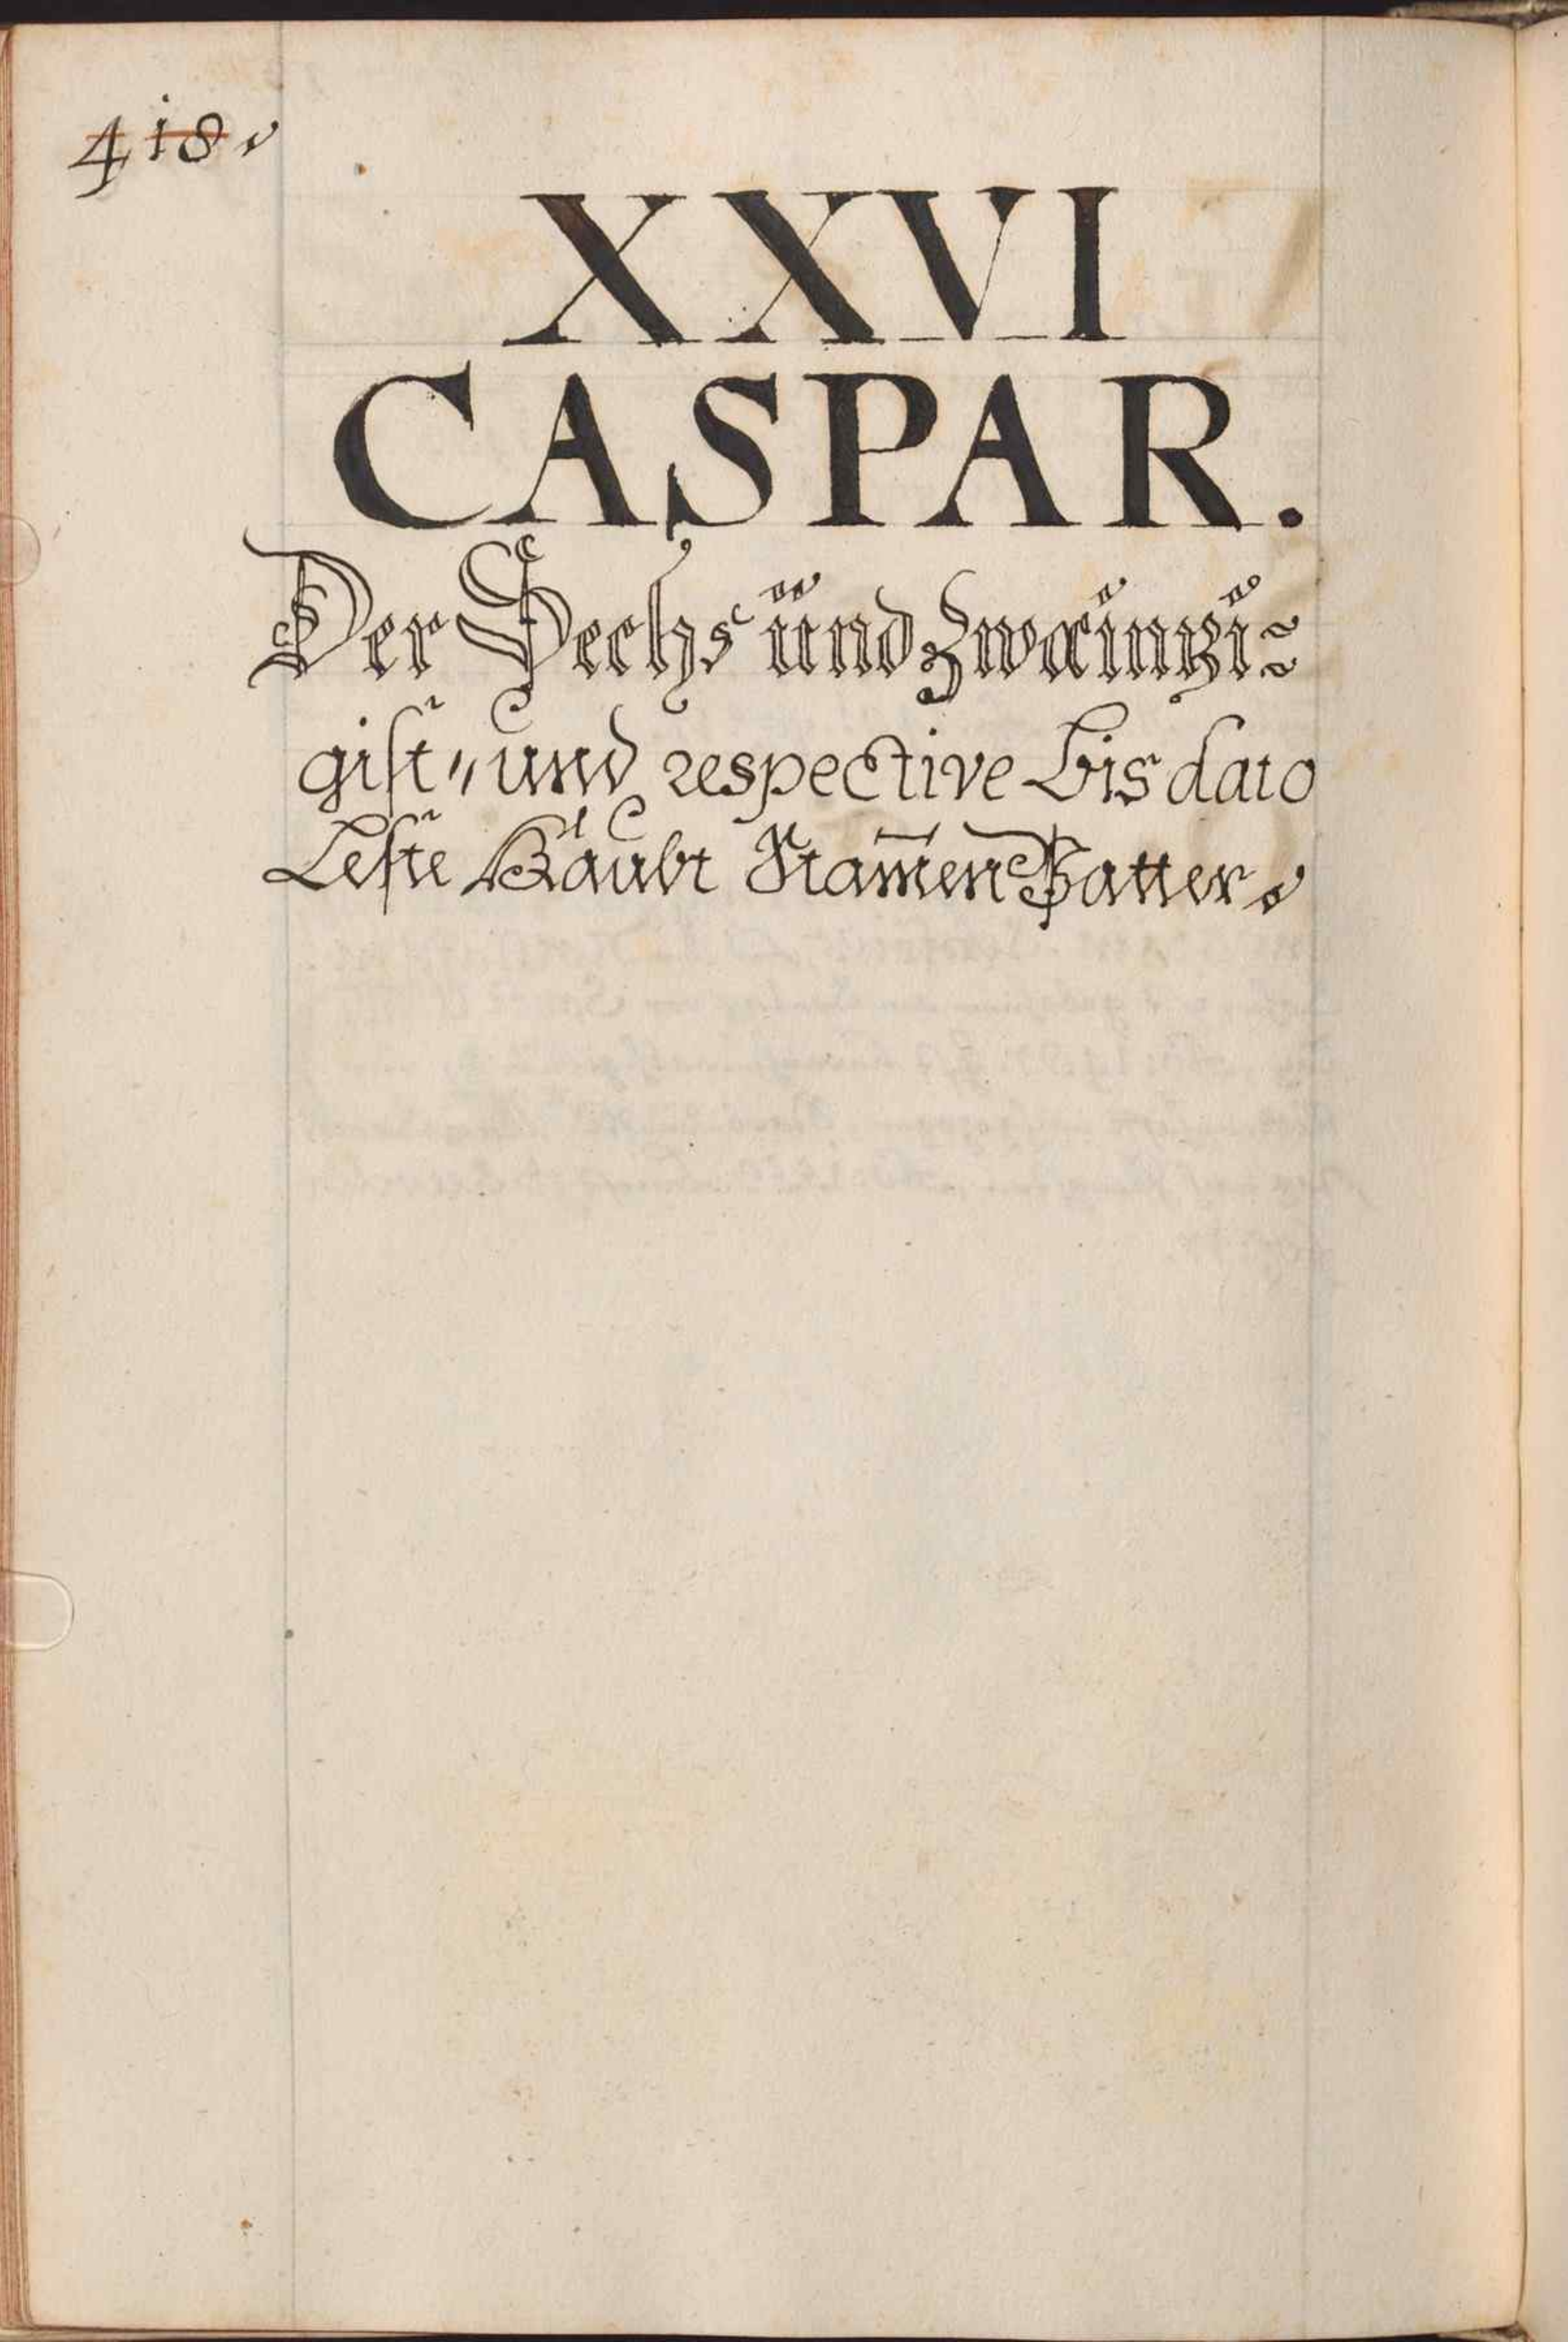 418.
XXVI
CASPAR.
Der Sechs und Zwainzi=
gist„ und respective bis dato
Leste Haubt Stam̃en Vatter.